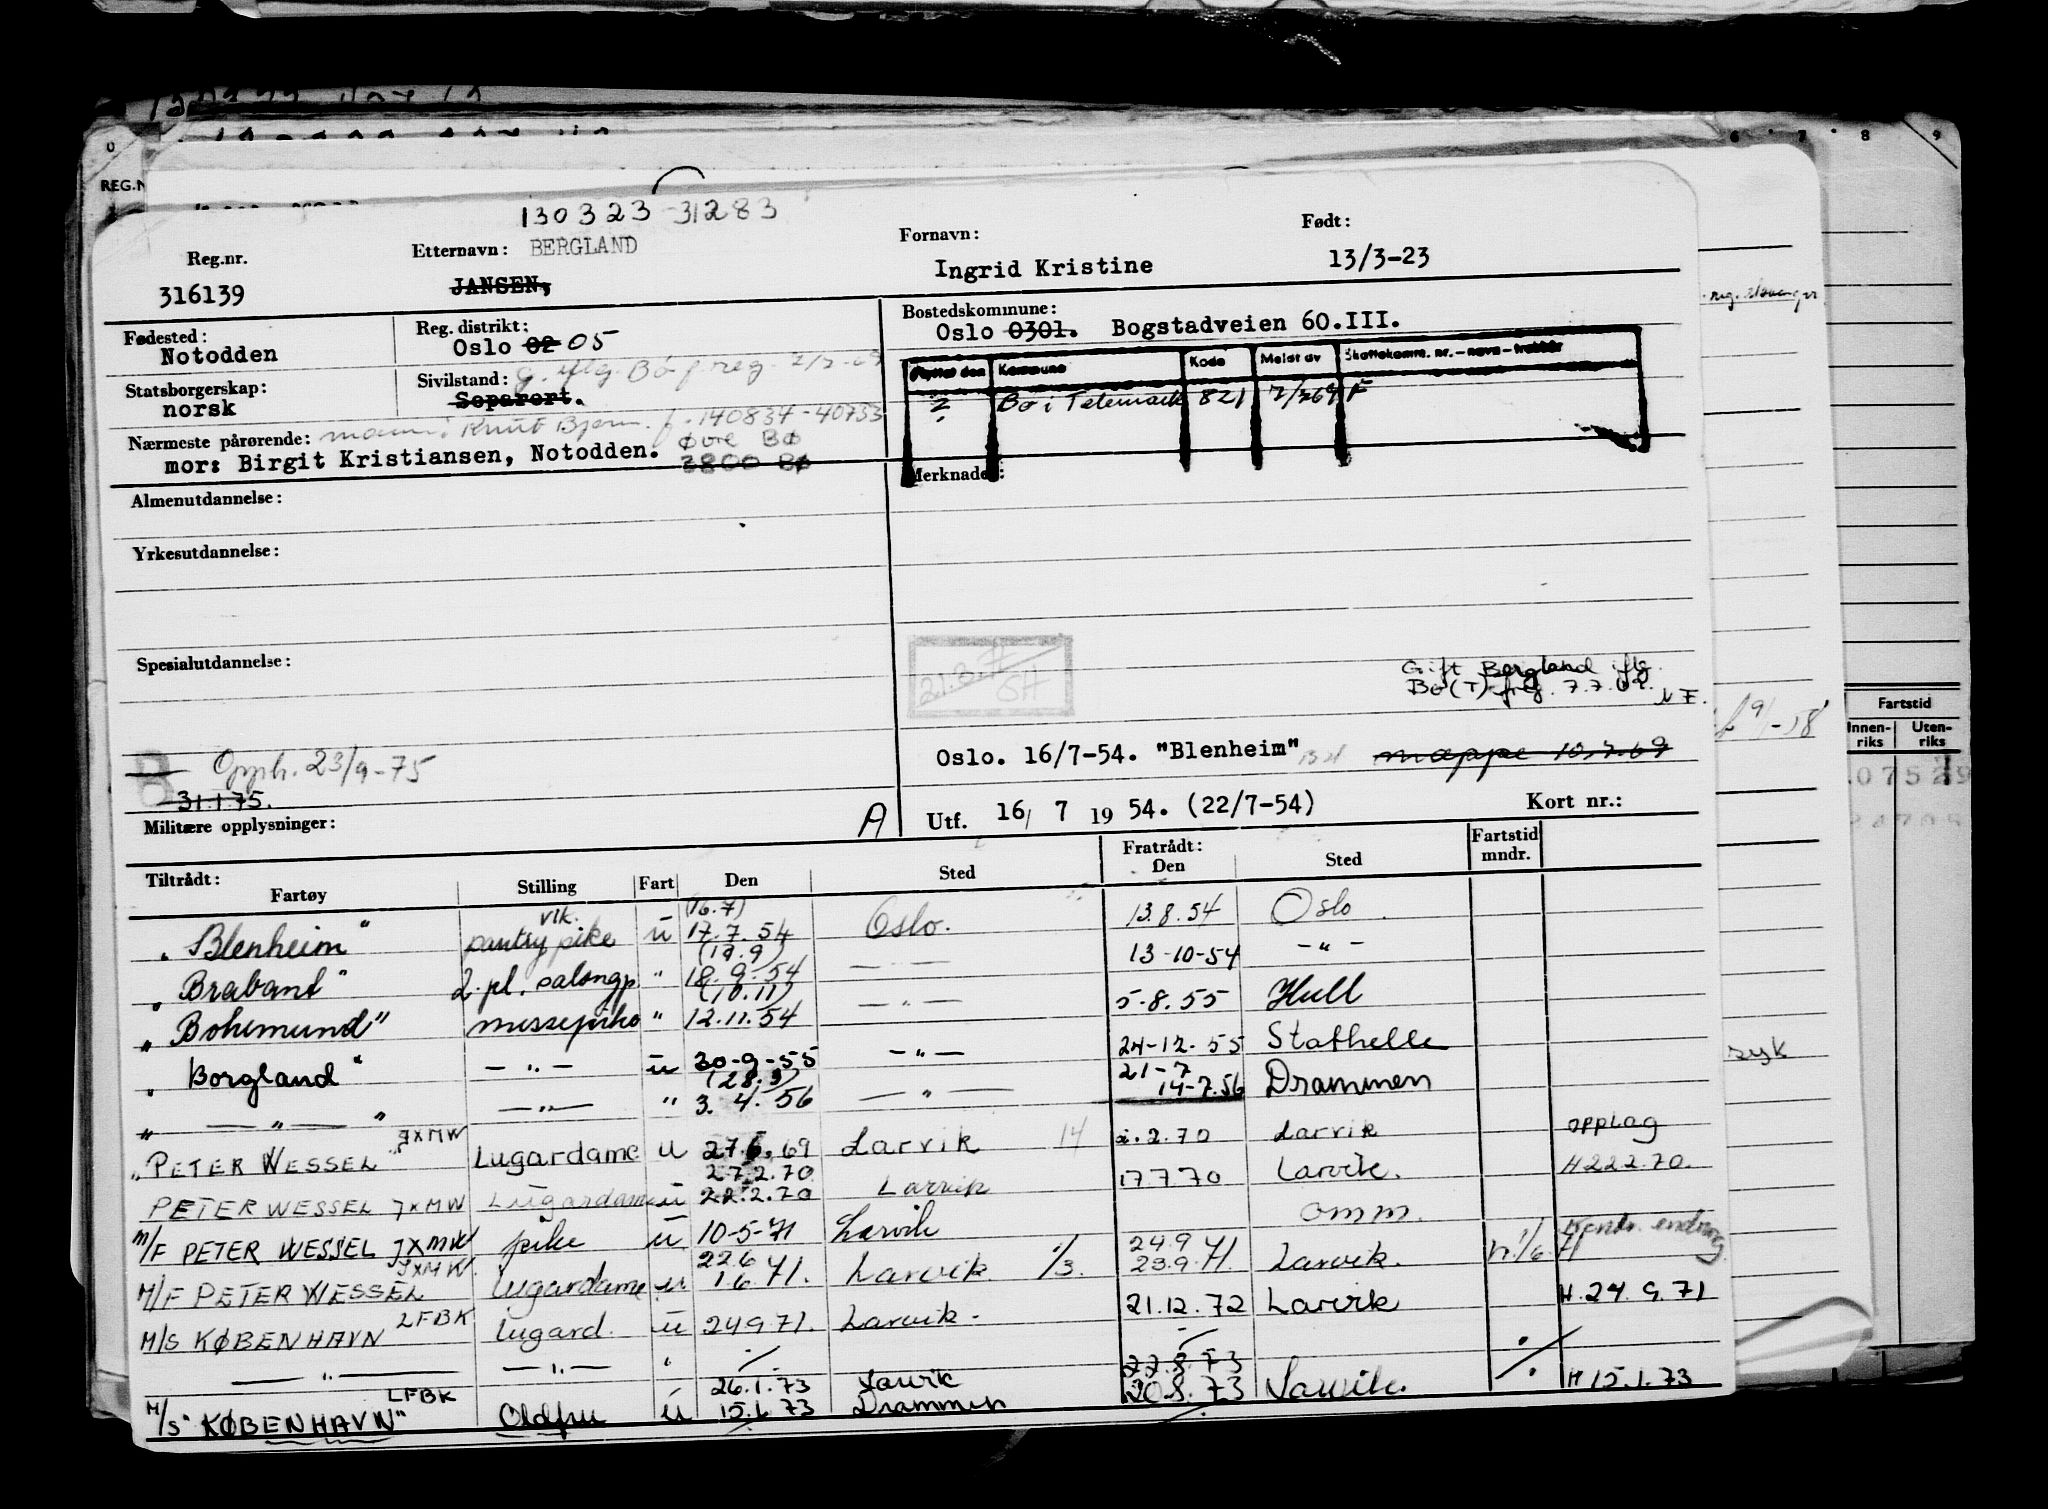 REG.N
6 7 8 9
0
130323-31283
Reg.nr.
316139
Etternavn: BERGLAND
JANSEN,
Fornavn:
Ingrid Kristine
Født:
13/3-23
Fødested:
Notodden
Reg. distrikt:
Oslo 02 05
Bostedskommune:
Oslo 0301. Bogstadveien 60.III.
Statsborgerskap:
norsk
Sivilstand: g. iflg. Bø f.reg.
Separert.
Flyttet den Kommune Kode Meldt av Skattekomm. nr. - navn - trekkår
? Bø i Telemark 821 7/7 69 F
Nærmeste pårørende: mann: Knut Bjørn. f. 140834-40733
mor: Birgit Kristiansen, Notodden.
Øvre Bø
3800 Bø
Merknader:
Almenutdannelse:
Yrkesutdannelse:
Spesialutdannelse:
Gift Bergland iflg.
Bø (T) freg. 7.7.69.
NF.
B Opph. 23/9-75
31.1.75.
Oslo. 16/7-54. "Blenheim" mappe 10.7.69
Militære opplysninger:
A
Utf. 16/ 7 1954. (22/7-54)
Kort nr.:
Tiltrådt:
Fartøy Stilling Fart Den Sted Fratrådt: Den Sted Fartstid mndr.
"Blenheim" vlk. pantry pike u (16.7) 17.7.54 Oslo. 13.8.54 Oslo
"Brabant" 2.pl. salongp. " (19.9) 18.9.54 — 13-10-54 -"-
"Bohemund" messepike " (10.11) 12.11.54 -"- 5.8.55 Hull
"Borgland" -"- u 30-9-55 -"- 24-12-55 Stathelle
" -"- " -"- " (28.3) 3.4.56 -"- 21-7 14-7.56 Drammen
"PETER WESSEL" JXMW Lugardame u 27.6.69 Larvik 14 2.70 Larvik opplag
PETER WESSEL JXMW Lugardame u 27.2.70 22.2.70 Larvik 17.7.70 Larvik. H 22.2.70.
M/F PETER WESSEL JXMW pike u 10-5-71 Larvik omm. 1/6.71 Kondr. endring
M/F PETER WESSEL JXMW Lugardame u 22.6 1.6.71. Larvik 1/3. 24.9 23.9.71. Larvik.
M/S KØBENHAVN LFBK Lugard. u 24.9.71. Larvik. 21.12.72 Larvik H. 24.9.71
-"- -"- " ./. ./.
M/S "KØBENHAVN" LFBK Oldfru u 26.1.73 15.1.73 Larvik Drammen 22.8.73 20.8.73 Larvik. H 15.1.73
9/-58
syk
Fartstid
Innen-riks
Uten-riks